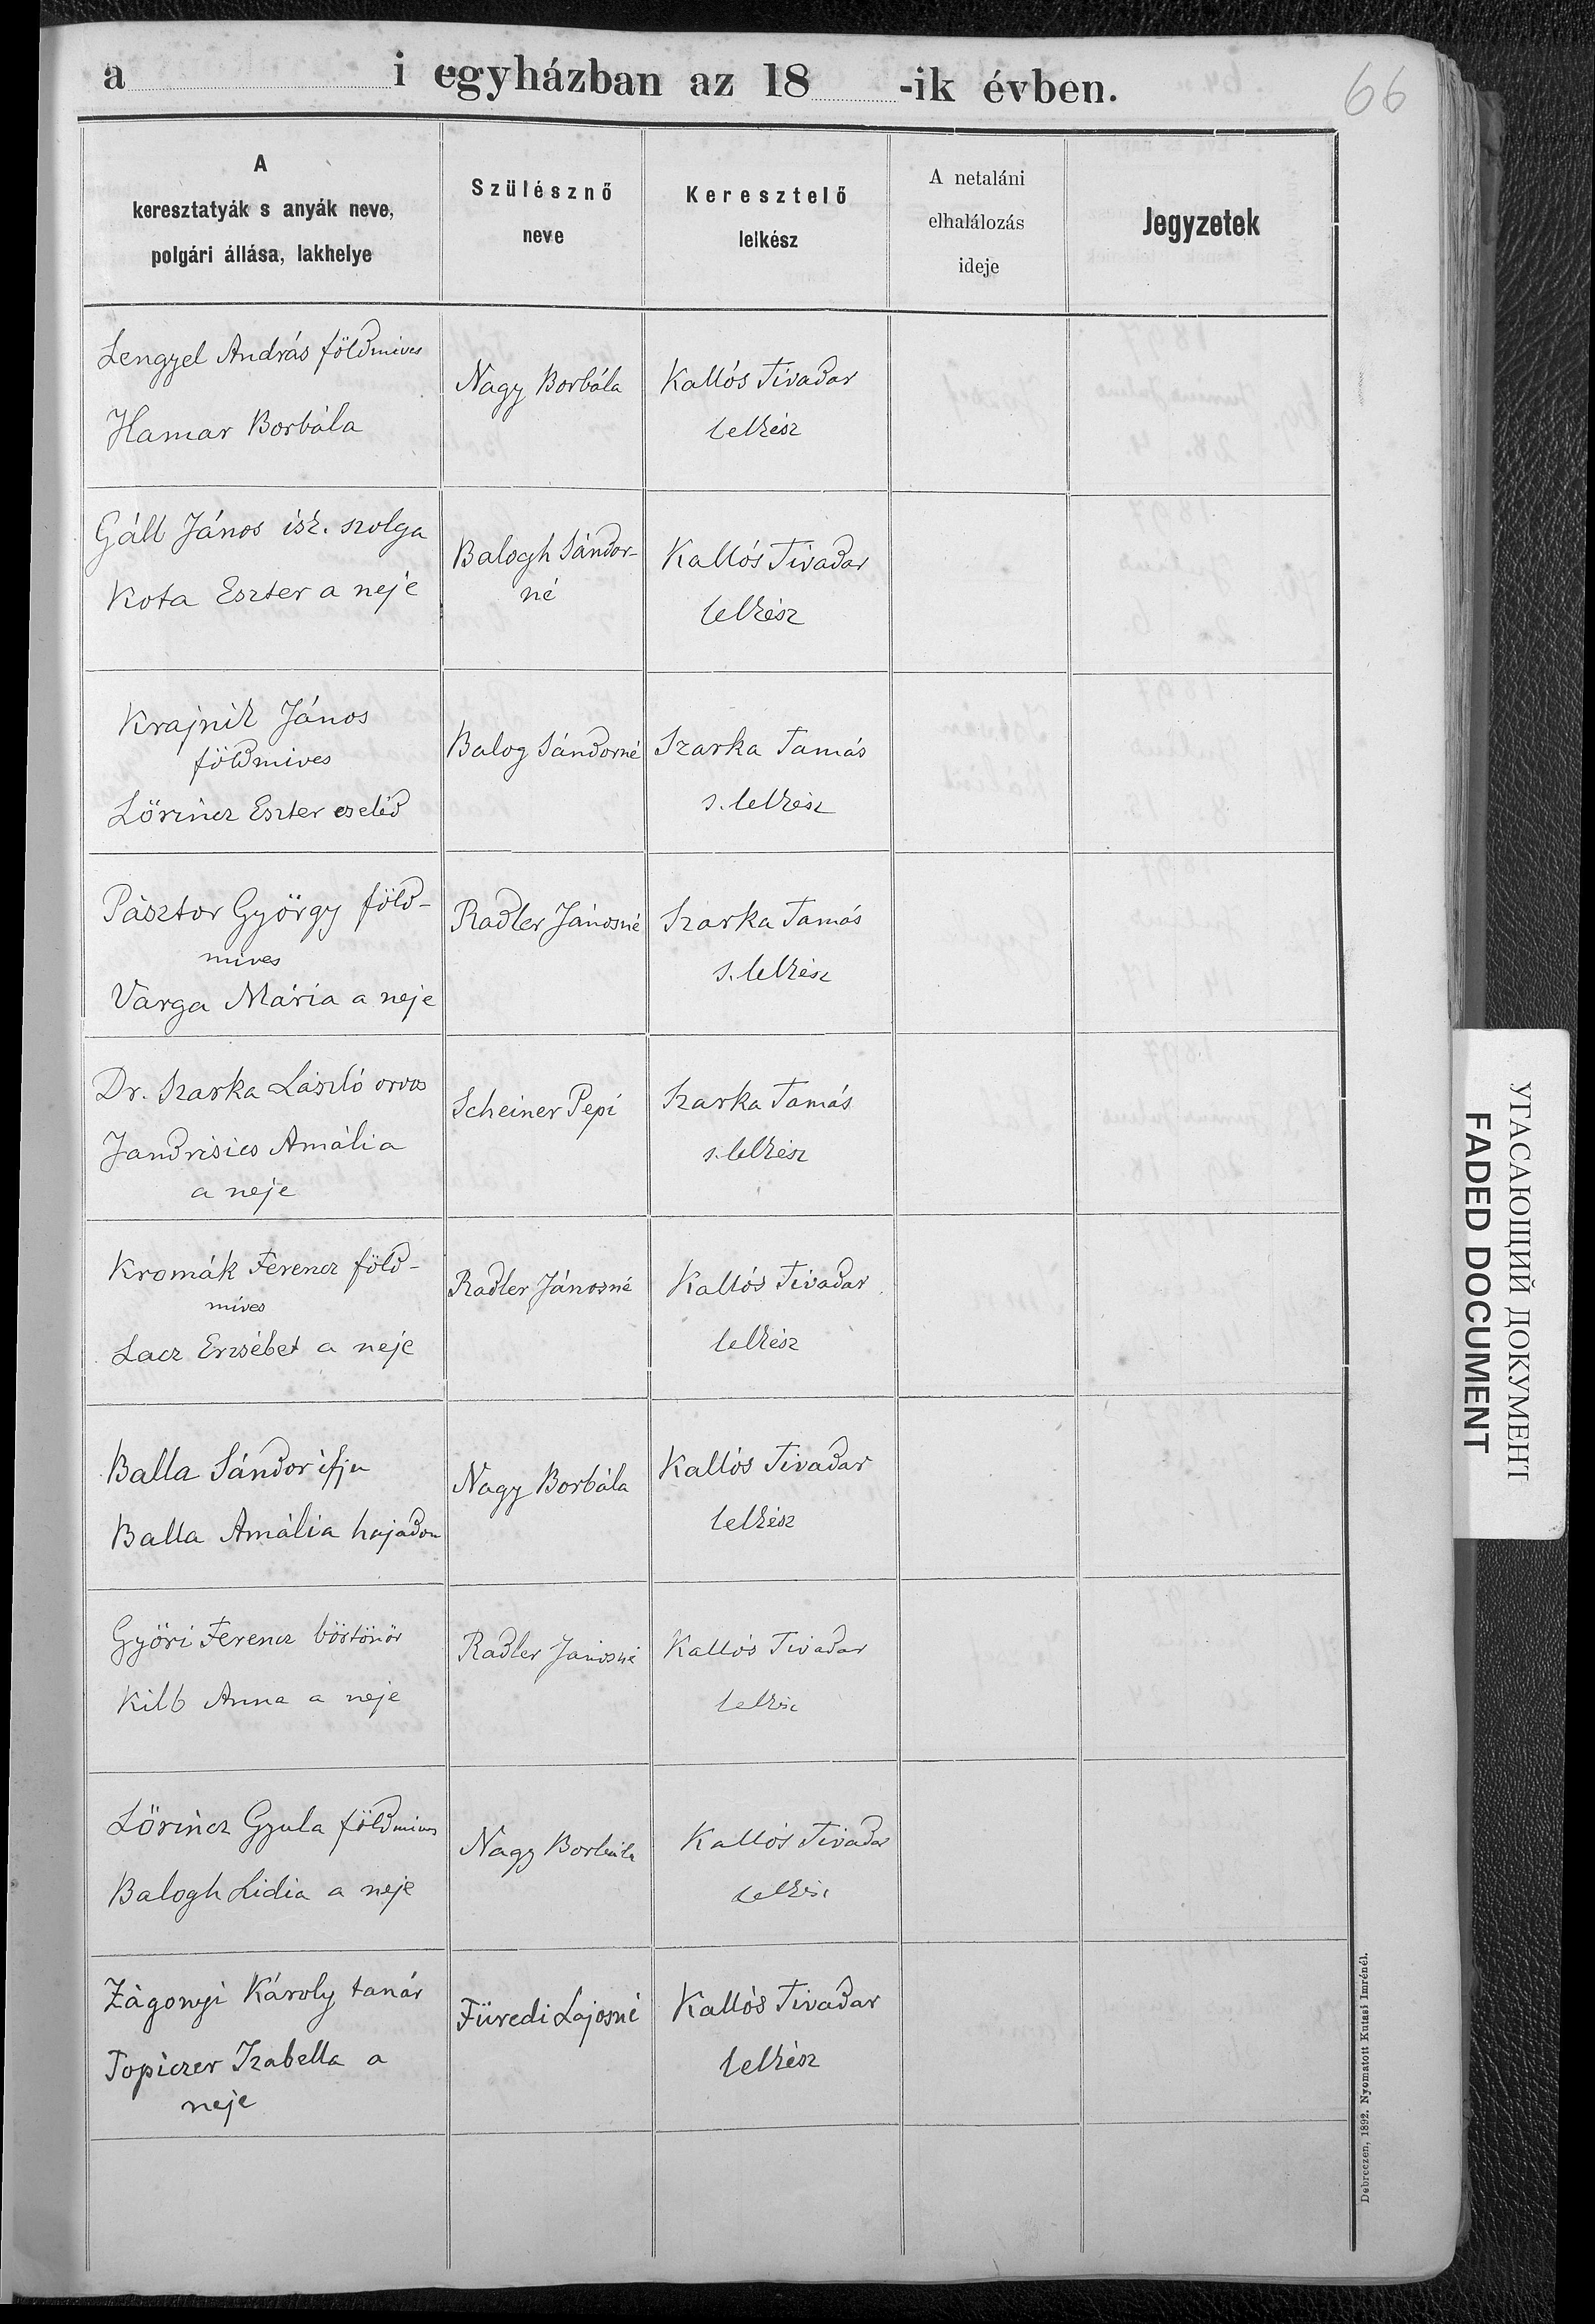 a i egyházban az 18 -ik évben.
66
A
keresztatyák s anyák neve,
polgári állása, lakhelye
Szülésznő
neve
Keresztelő
lelkész
A netaláni
elhalálozás
ideje
Jegyzetek
Lengyel András földmives
Hamar Borbála
Nagy Borbála
Kallós Tivadar
lelkész
Gáll János isk. szolga
Kota Eszter a neje
Balogh Sándor-
né
Kallós Tivadar
lelkész
Krajnik János
földmives
Lőrincz Eszter cseléd
Balog Sándorné
Szarka Tamás
s. lelkész
Pásztor György föld-
mives
Varga Mária a neje
Radler Jánosné
Szarka Tamás
s. lelkész
Dr. Szarka László orvos
Jandrisics Amália
a neje
Scheiner Pepi
Szarka Tamás
s. lelkész
Kromák Ferencz föld-
mives
Lacz Erzsébet a neje
Radler Jánosné
Kallós Tivadar
lelkész
Balla Sándor ifju
Balla Amália hajadon
Nagy Borbála
Kallós Tivadar
lelkész
Győri Ferencz börtönőr
Kilb Anna a neje
Radler Jánosné
Kallós Tivadar
lelkész
Lőrincz Gyula földmives
Balogh Lidia a neje
Nagy Borbála
Kallós Tivadar
lelkész
Zágonyi Károly tanár
Topiczer Izabella a
neje
Füredi Lajosné
Kallós Tivadar
lelkész
Debreczen, 1892. Nyomatott Kutasi Imrénél.
УГАСАЮЩИЙ ДОКУМЕНТ
FADED DOCUMENT